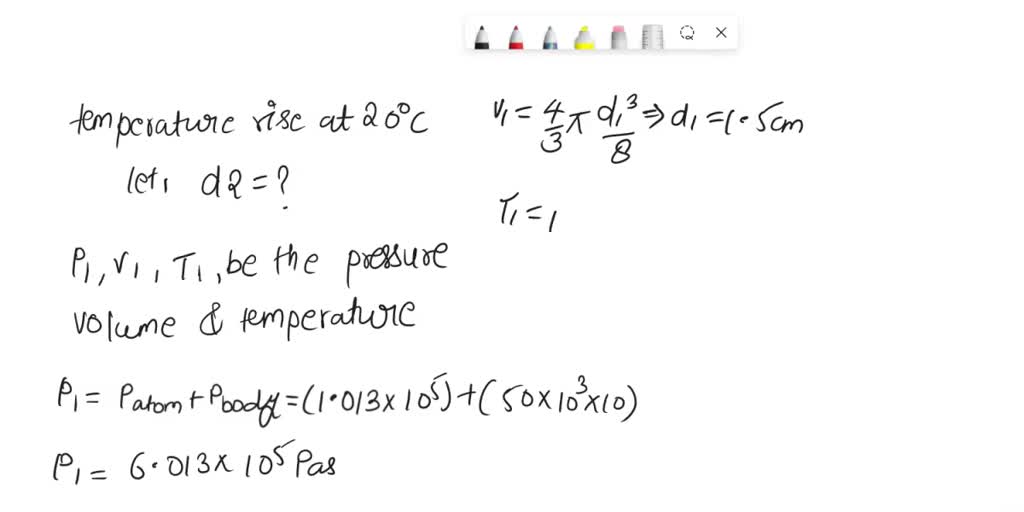 temperature rise at 20°c
let, d2 = ?
P₁, V₁, T₁, be the pressure
volume & temperature
P₁ = Patom + Pbody = (1.013 × 10⁵) + (50 × 10³ × 10)
P₁ = 6.013 × 10⁵ Pas
V₁ = 4/3 π d₁³/8 ⇒ d₁ = 1.5cm
T₁ = 1